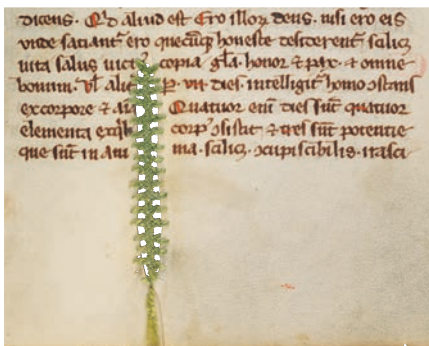 dicens. Qd aliud est Ero illoꝝ deus. nisi ero eis
vnde satiant᷑ ero quecūqꝫ honeste desiderent᷑ salicꝫ
uita salus uict copia gl̄a. honor ⁊ pax. ⁊ omne
bonum. Vl̓ ali p. vii. dies intelligit᷑ homo ꝯstans
ex corpore ⁊ Quatuor eni᷑ dies sūt quatuor
elementa corpꝰ ꝯsistit ⁊ tres sūt potentie
que sūt in ani ma. salicꝫ. ꝯcupiscibilis. irasci